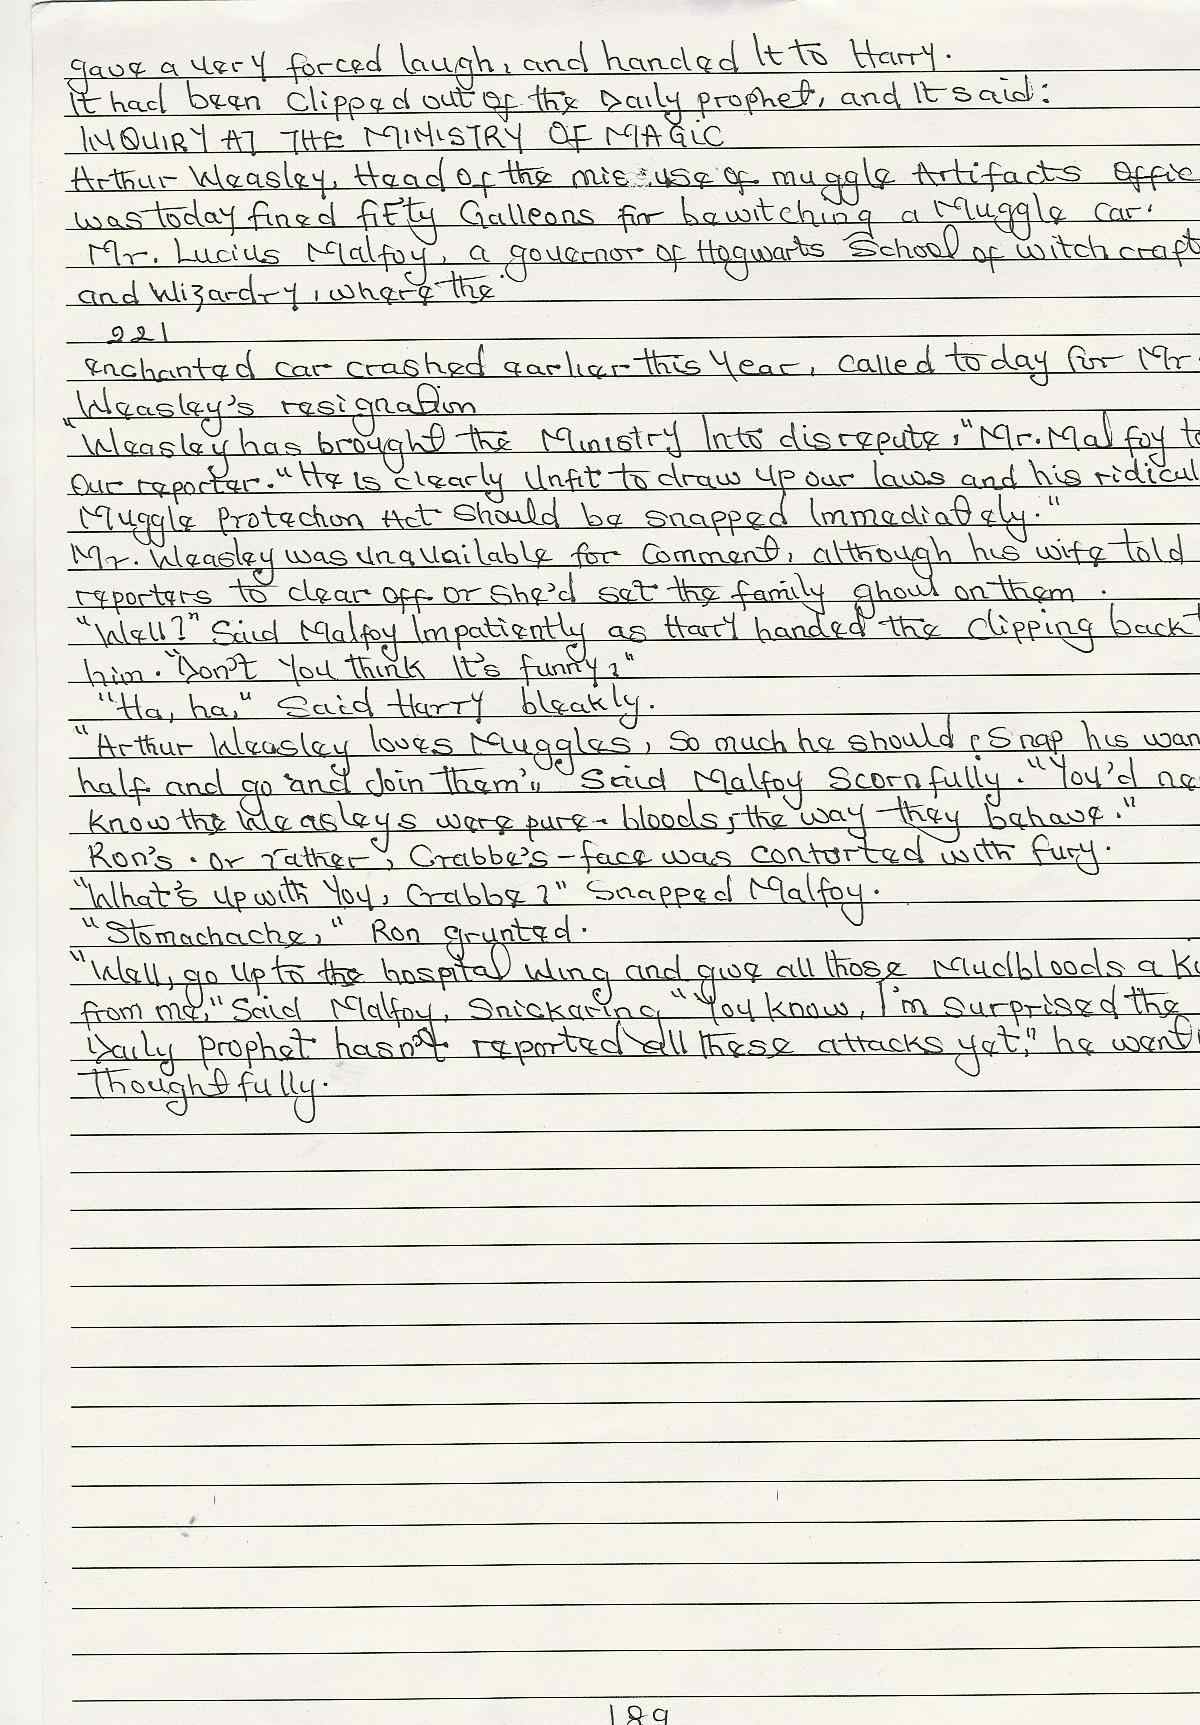 gave a very forced laugh, and handed It to Harry.
It had been Clipped out of the Daily prophet, and It said:
INQUIRY AT THE MINISTRY OF MAGIC
Arthur Weasley, Head of the misuse of muggle Artifacts Offic
was today fined fifty Galleons for bewitching a Muggle car.
Mr. Lucius Malfoy, a governor of Hogwarts School of witch craft
and Wizardry, where the
221
enchanted car crashed earlier this Year, called today for Mr.
Weasley's resignation
"Weasley has brought the Ministry Into disrepute," Mr. Malfoy to
Our reporter. "He Is clearly Unfit to draw up our laws and his ridicul
Muggle Protection Act Should be snapped Immediately."
Mr. Weasley was unavailable for Comment, although his wife told
reporters to clear off or She'd set the family ghoul on them.
"Well?" Said Malfoy Impatiently as Harry handed the Clipping back t
him. "Don't You think It's funny?"
"Ha, ha," Said Harry bleakly.
"Arthur Weasley loves Muggles, So much he should, Snap his wan
half and go and Join them," Said Malfoy Scornfully. "You'd ne
Know the Weasleys were pure-bloods, the way they behave."
Ron's. or rather, Crabbe's-face was contorted with fury.
"What's up with You, Crabbe?" Snapped Malfoy.
"Stomachache," Ron grunted.
"Well, go up to the hospital Wing and give all those Mudbloods a Ki
from me," Said Malfoy, Snickering "You know, I'm surprised the
Daily prophet hasn't reported all these attacks yet," he went
Thoughtfully.
189